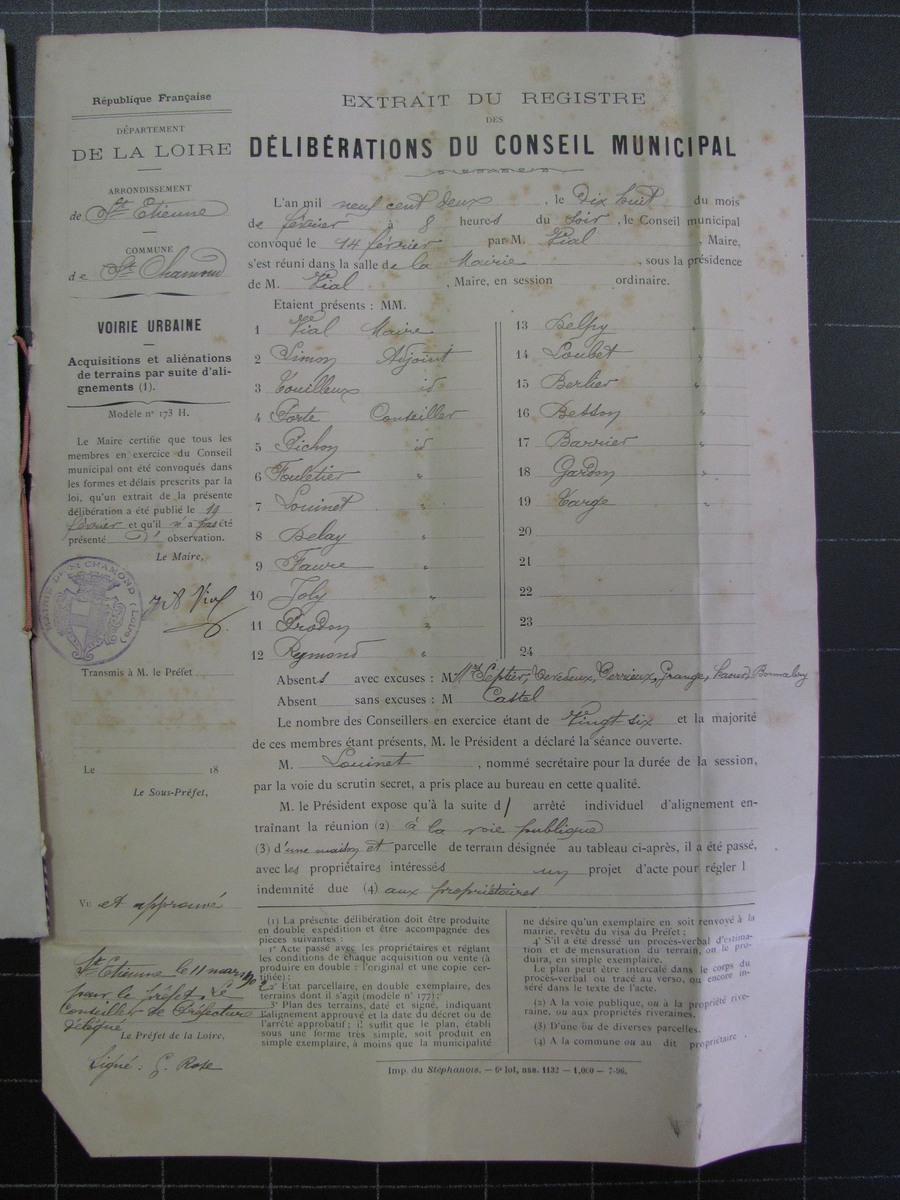 République Française
DÉPARTEMENT
DE LA LOIRE
ARRONDISSEMENT
de St Etienne
COMMUNE
de St Chamond
VOIRIE URBAINE
Acquisitions et aliénations
de terrains par suite d'ali-
gnements (1).
Modèle n° 173 H.
Le Maire certifie que tous les
membres en exercice du Conseil
municipal ont été convoqués dans
les formes et délais prescrits par
la loi, qu'un extrait de la présente
délibération a été publié le 19
février et qu'il n'a pas été
présenté d' observation.
Le Maire,
MAIRIE DE ST CHAMOND (Loire)
Vial
Transmis à M. le Préfet
Le 18
Le Sous-Préfet,
Vu et approuvé
St Etienne le 11 mars
pour le préfet, Le
Conseiller de Préfecture
délégué
Le Préfet de la Loire,
Signé : G. Rose
EXTRAIT DU REGISTRE
DES
DÉLIBÉRATIONS DU CONSEIL MUNICIPAL
L'an mil neuf cent deux , le Dix huit du mois
de février à 8 heures du soir , le Conseil municipal
convoqué le 14 février par M. Vial , Maire,
s'est réuni dans la salle de la Mairie , sous la présidence
de M. Vial , Maire, en session ordinaire.
Etaient présents : MM.
1 Vial Maire
2 Simon Adjoint
3 Couilleux id
4 Porte Conseiller
5 Pichon id
6 Fouletier "
7 Louinet "
8 Delay "
9 Faure "
10 Joly "
11 Prodon "
12 Reymond "
13 Delpy "
14 Loubet "
15 Berlier "
16 Besson "
17 Barrier "
18 Gardon "
19 Targe "
20
21
22
23
24
Absents avec excuses : M Septier, Perrieux, Grange, Bonnabry
Absent sans excuses : M Castel
Le nombre des Conseillers en exercice étant de Vingt six et la majorité
de ces membres étant présents, M. le Président a déclaré la séance ouverte.
M. Louinet , nommé secrétaire pour la durée de la session,
par la voie du scrutin secret, a pris place au bureau en cette qualité.
M. le Président expose qu'à la suite d/ arrêté individuel d'alignement en-
traînant la réunion (2) à la voie publique
(3) d'une maison et parcelle de terrain désignée au tableau ci-après, il a été passé,
avec les propriétaires intéressés un projet d'acte pour régler l
indemnité due (4) aux propriétaires
(1) La présente délibération doit être produite
en double expédition et être accompagnée des
pièces suivantes :
1° Acte passé avec les propriétaires et réglant
les conditions de chaque acquisition ou vente (à
produire en double : l'original et une copie cer-
tifiée) ;
2° Etat parcellaire, en double exemplaire, des
terrains dont il s'agit (modèle n° 177) ;
3° Plan des terrains, daté et signé, indiquant
l'alignement approuvé et la date du décret ou de
l'arrêté approbatif ; il suffit que le plan, établi
sous une forme très simple, soit produit en
simple exemplaire, à moins que la municipalité
ne désire qu'un exemplaire en soit renvoyé à la
mairie, revêtu du visa du Préfet ;
4° S'il a été dressé un procès-verbal d'estima-
tion et de mensuration du terrain, ou le pro-
duira, en simple exemplaire.
Le plan peut être intercalé dans le corps du
procès-verbal ou tracé au verso, ou encore in-
séré dans le texte de l'acte.
(2) A la voie publique, ou à la propriété rive-
raine, ou aux propriétés riveraines.
(3) D'une ou de diverses parcelles.
(4) A la commune ou au dit propriétaire.
Imp. du Stéphanois. — 6e lot, ann. 1132 — 1,000 — 7-96.